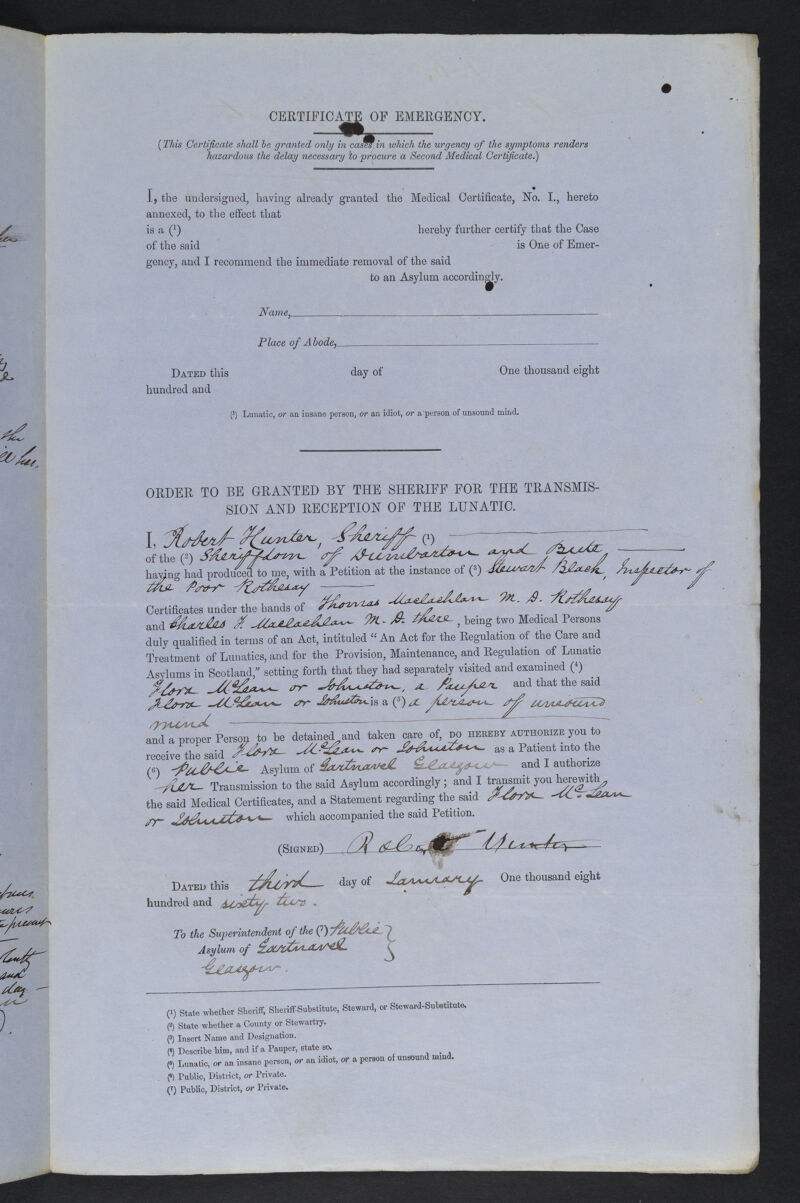 CERTIFICATE OF EMERGENCY.
(This Certificate shall be granted only in cases in which the urgency of the symptoms renders
hazardous the delay necessary to procure a Second Medical Certificate.)
I, the undersigned, having already granted the Medical Certificate, No. I., hereto
annexed, to the effect that
is a (¹) hereby further certify that the Case
of the said is One of Emer-
gency, and I recommend the immediate removal of the said
to an Asylum accordingly.
Name,
Place of Abode,
DATED this day of One thousand eight
hundred and
(¹) Lunatic, or an insane person, or an idiot, or a person of unsound mind.
ORDER TO BE GRANTED BY THE SHERIFF FOR THE TRANSMIS-
SION AND RECEPTION OF THE LUNATIC.
I, Robert Hunter, Sheriff (¹)
of the (²) Sheriffdom of Dumbarton and Bute
having had produced to me, with a Petition at the instance of (³) Stewart Black, Inspector of
the Poor Rothesay
Certificates under the hands of Thomas Maclachlan M. D. Rothesay
and Charles F. Maclachlan M. D. there, being two Medical Persons
duly qualified in terms of an Act, intituled "An Act for the Regulation of the Care and
Treatment of Lunatics, and for the Provision, Maintenance, and Regulation of Lunatic
Asylums in Scotland," setting forth that they had separately visited and examined (⁴)
Flora McLean or Johnston, a Pauper and that the said
Flora McLean or Johnston is a (⁵) a person of unsound
mind
and a proper Person to be detained and taken care of, DO HEREBY AUTHORIZE you to
receive the said Flora McLean or Johnston as a Patient into the
(⁶) Public Asylum of Gartnavel Glasgow and I authorize
her Transmission to the said Asylum accordingly; and I transmit you herewith
the said Medical Certificates, and a Statement regarding the said Flora McLean
or Johnston which accompanied the said Petition.
(SIGNED) Robert Hunter
DATED this third day of January One thousand eight
hundred and sixty two.
To the Superintendent of the (⁷) Public
Asylum of Gartnavel
Glasgow.
(¹) State whether Sheriff, Sheriff-Substitute, Steward, or Steward-Substitute.
(²) State whether a County or Stewartry.
(³) Insert Name and Designation.
(⁴) Describe him, and if a Pauper, state so.
(⁵) Lunatic, or an insane person, or an idiot, or a person of unsound mind.
(⁶) Public, District, or Private.
(⁷) Public, District, or Private.